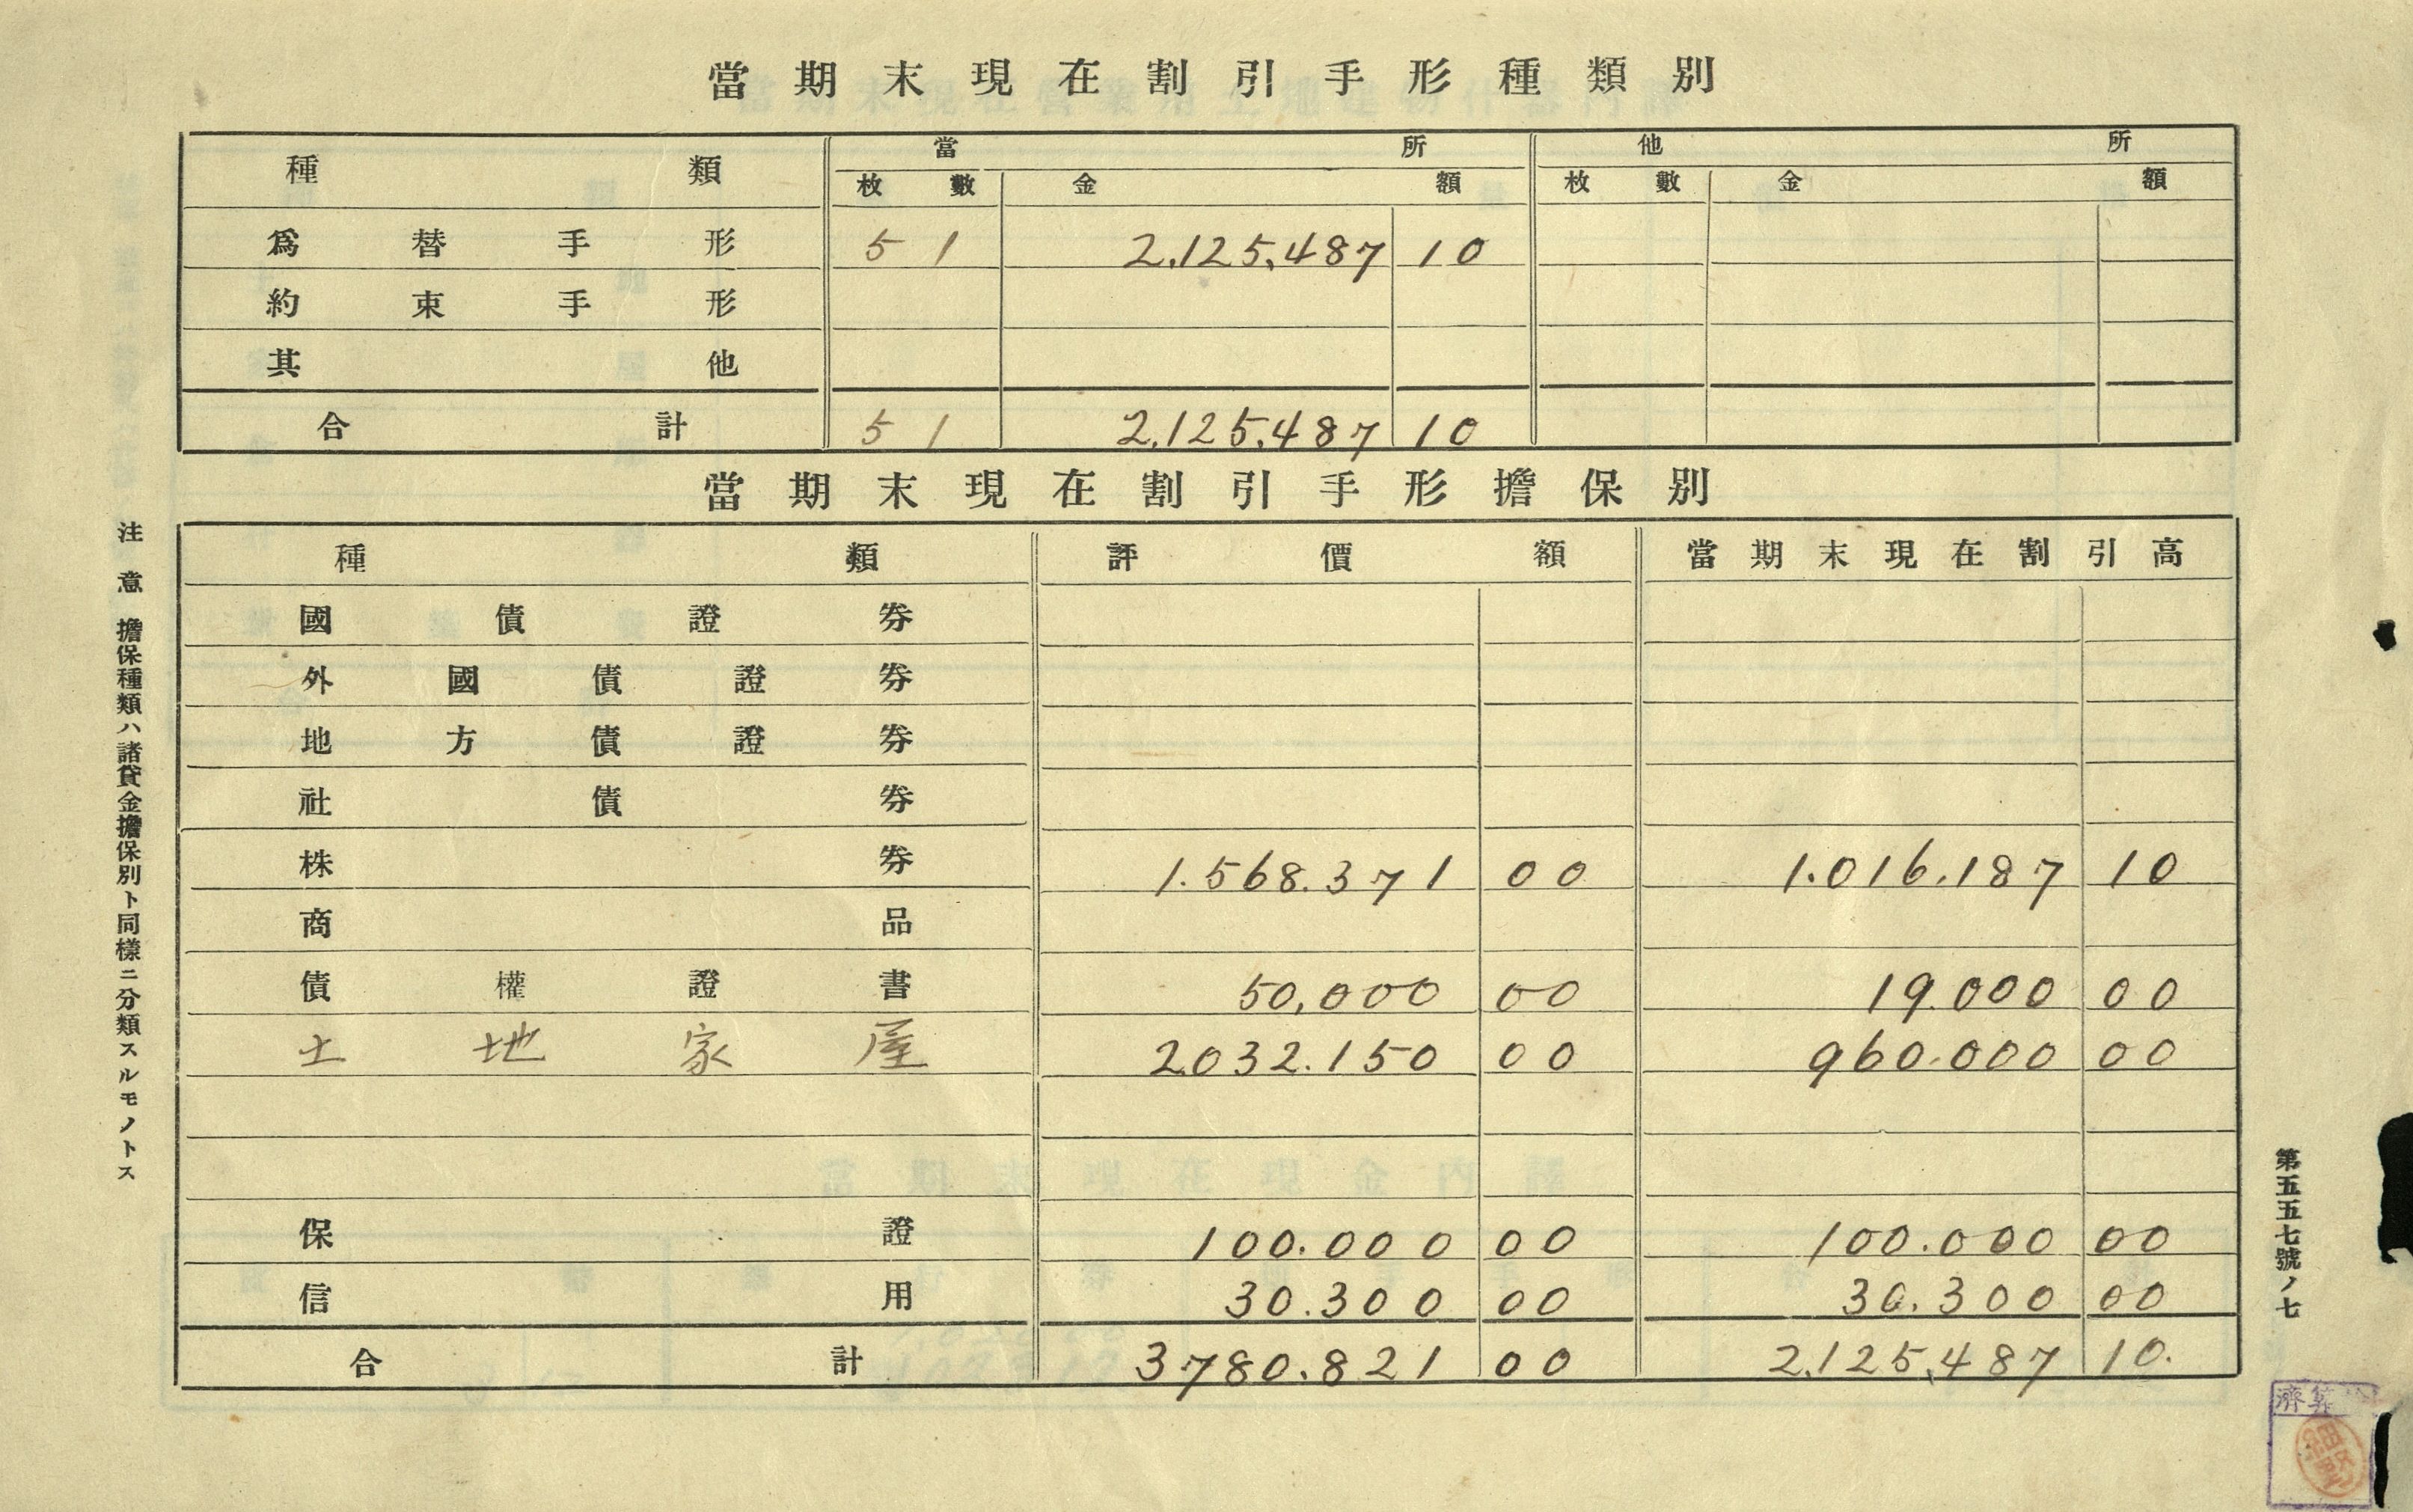 當期末現在割引手形種類別
種類 當所 他所
枚數 金額 枚數 金額
爲替手形 51 2,125,487 10
約束手形
其他
合計 51 2,125,487 10
當期末現在割引手形擔保別
種類 評價額 當期末現在割引高
國債證券
外國債證券
地方債證券
社債券
株券 1.568.371 00 1.016.187 10
商品
債權證書 50,000 00 19.000 00
土地家屋 2032.150 00 960.000 00
保證 100.000 00 100.000 00
信用 30.300 00 30.300 00
合計 3780.821 00 2,125,487 10.
注意 擔保種類ハ諸貸金擔保別ト同樣ニ分類スルモノトス
第五五七號ノ七